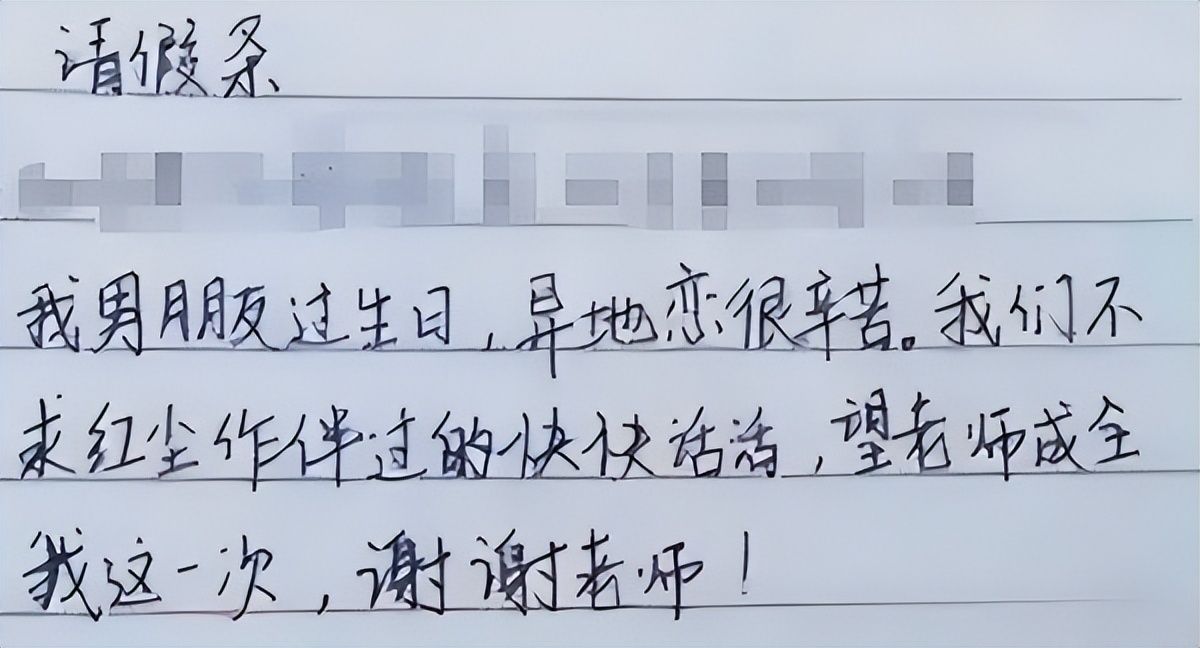 请假条
我男朋友过生日,异地恋很辛苦。我们不
求红尘作伴过的快快活活,望老师成全
我这一次,谢谢老师!